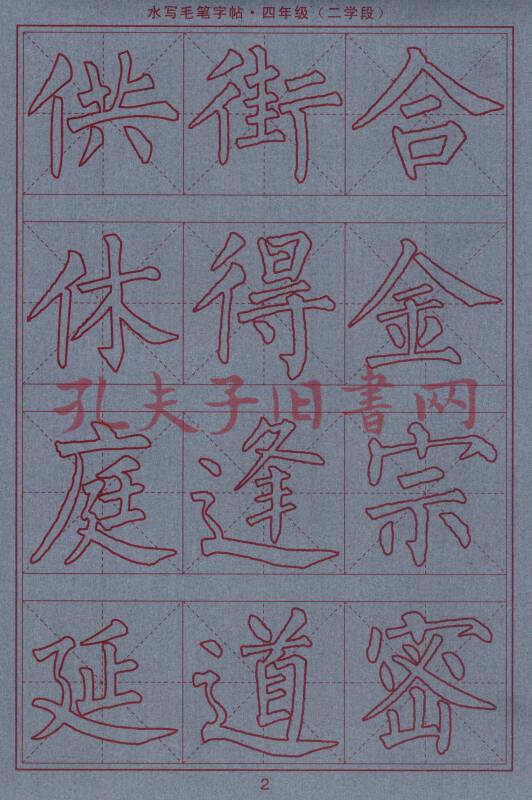 水写毛笔字帖·四年级（二学段）
供街合
休得金
孔夫子旧书网
庭逢宗
延道密
2